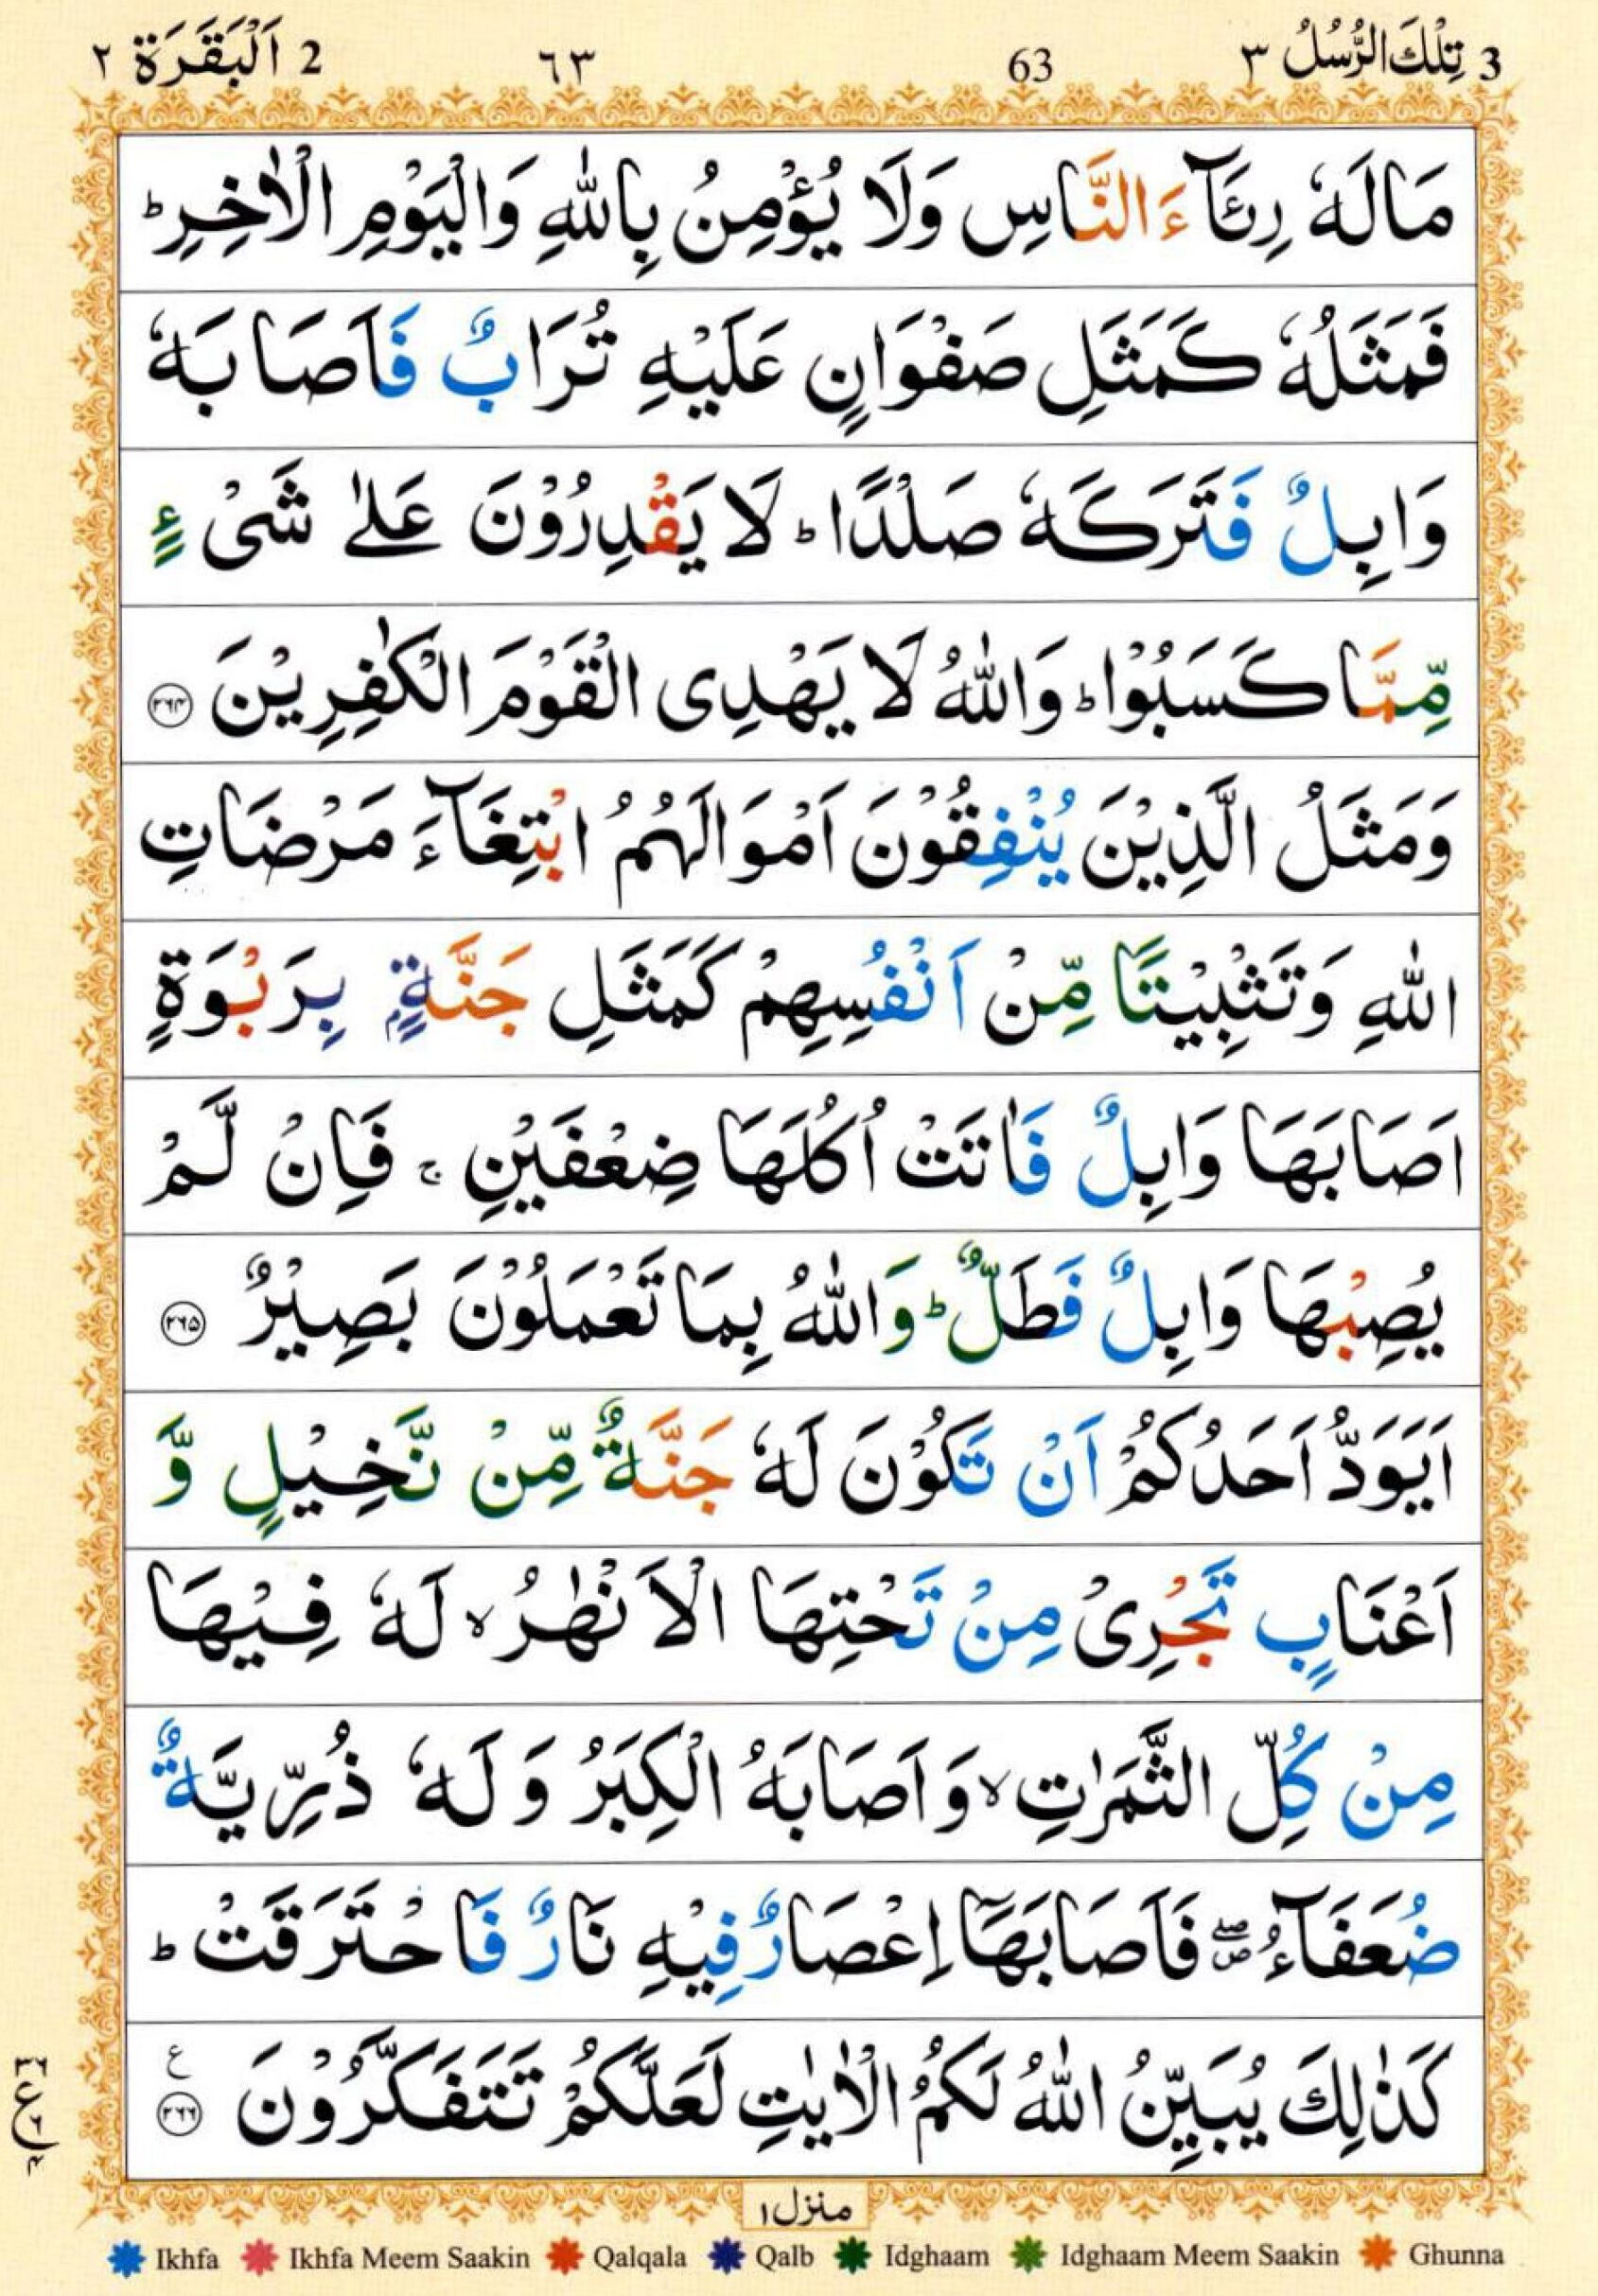 3 تِلْكَ الرُّسُلُ ٣ 63 ٦٣ 2 اَلْبَقَرَة ٢
مَالَهٗ رِئَآءَ النَّاسِ وَلَا يُؤْمِنُ بِاللّٰهِ وَالْيَوْمِ الْاٰخِرِ ؕ
فَمَثَلُهٗ كَمَثَلِ صَفْوَانٍ عَلَيْهِ تُرَابٌ فَاَصَابَهٗ
وَابِلٌ فَتَرَكَهٗ صَلْدًا ؕ لَا يَقْدِرُوْنَ عَلٰى شَىْءٍ
مِّمَّا كَسَبُوْا ؕ وَاللّٰهُ لَا يَهْدِى الْقَوْمَ الْكٰفِرِيْنَ ۝۲۶۴
وَمَثَلُ الَّذِيْنَ يُنْفِقُوْنَ اَمْوَالَهُمُ ابْتِغَآءَ مَرْضَاتِ
اللّٰهِ وَتَثْبِيْتًا مِّنْ اَنْفُسِهِمْ كَمَثَلِ جَنَّةٍۭ بِرَبْوَةٍ
اَصَابَهَا وَابِلٌ فَاٰتَتْ اُكُلَهَا ضِعْفَيْنِ ۚ فَاِنْ لَّمْ
يُصِبْهَا وَابِلٌ فَطَلٌّ ؕ وَاللّٰهُ بِمَا تَعْمَلُوْنَ بَصِيْرٌ ۝۲۶۵
اَيَوَدُّ اَحَدُكُمْ اَنْ تَكُوْنَ لَهٗ جَنَّةٌ مِّنْ نَّخِيْلٍ وَّ
اَعْنَابٍ تَجْرِىْ مِنْ تَحْتِهَا الْاَنْهٰرُ ۙ لَهٗ فِيْهَا
مِنْ كُلِّ الثَّمَرٰتِ ۙ وَاَصَابَهُ الْكِبَرُ وَلَهٗ ذُرِّيَّةٌ
ضُعَفَآءُ ۖ فَاَصَابَهَاۤ اِعْصَارٌ فِيْهِ نَارٌ فَاحْتَرَقَتْ ؕ
كَذٰلِكَ يُبَيِّنُ اللّٰهُ لَكُمُ الْاٰيٰتِ لَعَلَّكُمْ تَتَفَكَّرُوْنَ ۝۲۶۶ ع
۳۶ ع ۶ ۴
منزل ۱
Ikhfa Ikhfa Meem Saakin Qalqala Qalb Idghaam Idghaam Meem Saakin Ghunna